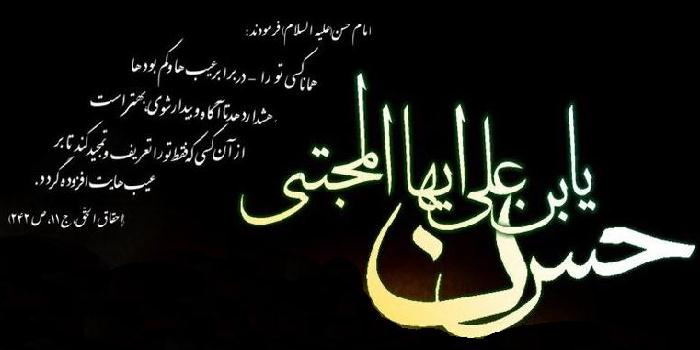 امام حسن (علیه السلام) فرمودند:
همانا کسی تو را - در برابر عیب ها و کم بودها
هشدار دهد تا آگاه و بیدار شوی، بهتر است
از آن کسی که فقط تو را تعریف و تمجید کند تا بر
عیب هایت افزوده گردد.
(احقاق الحق، ج ۱۱، ص ۲۴۲)
یابن علی ایها المجتبی
حسن